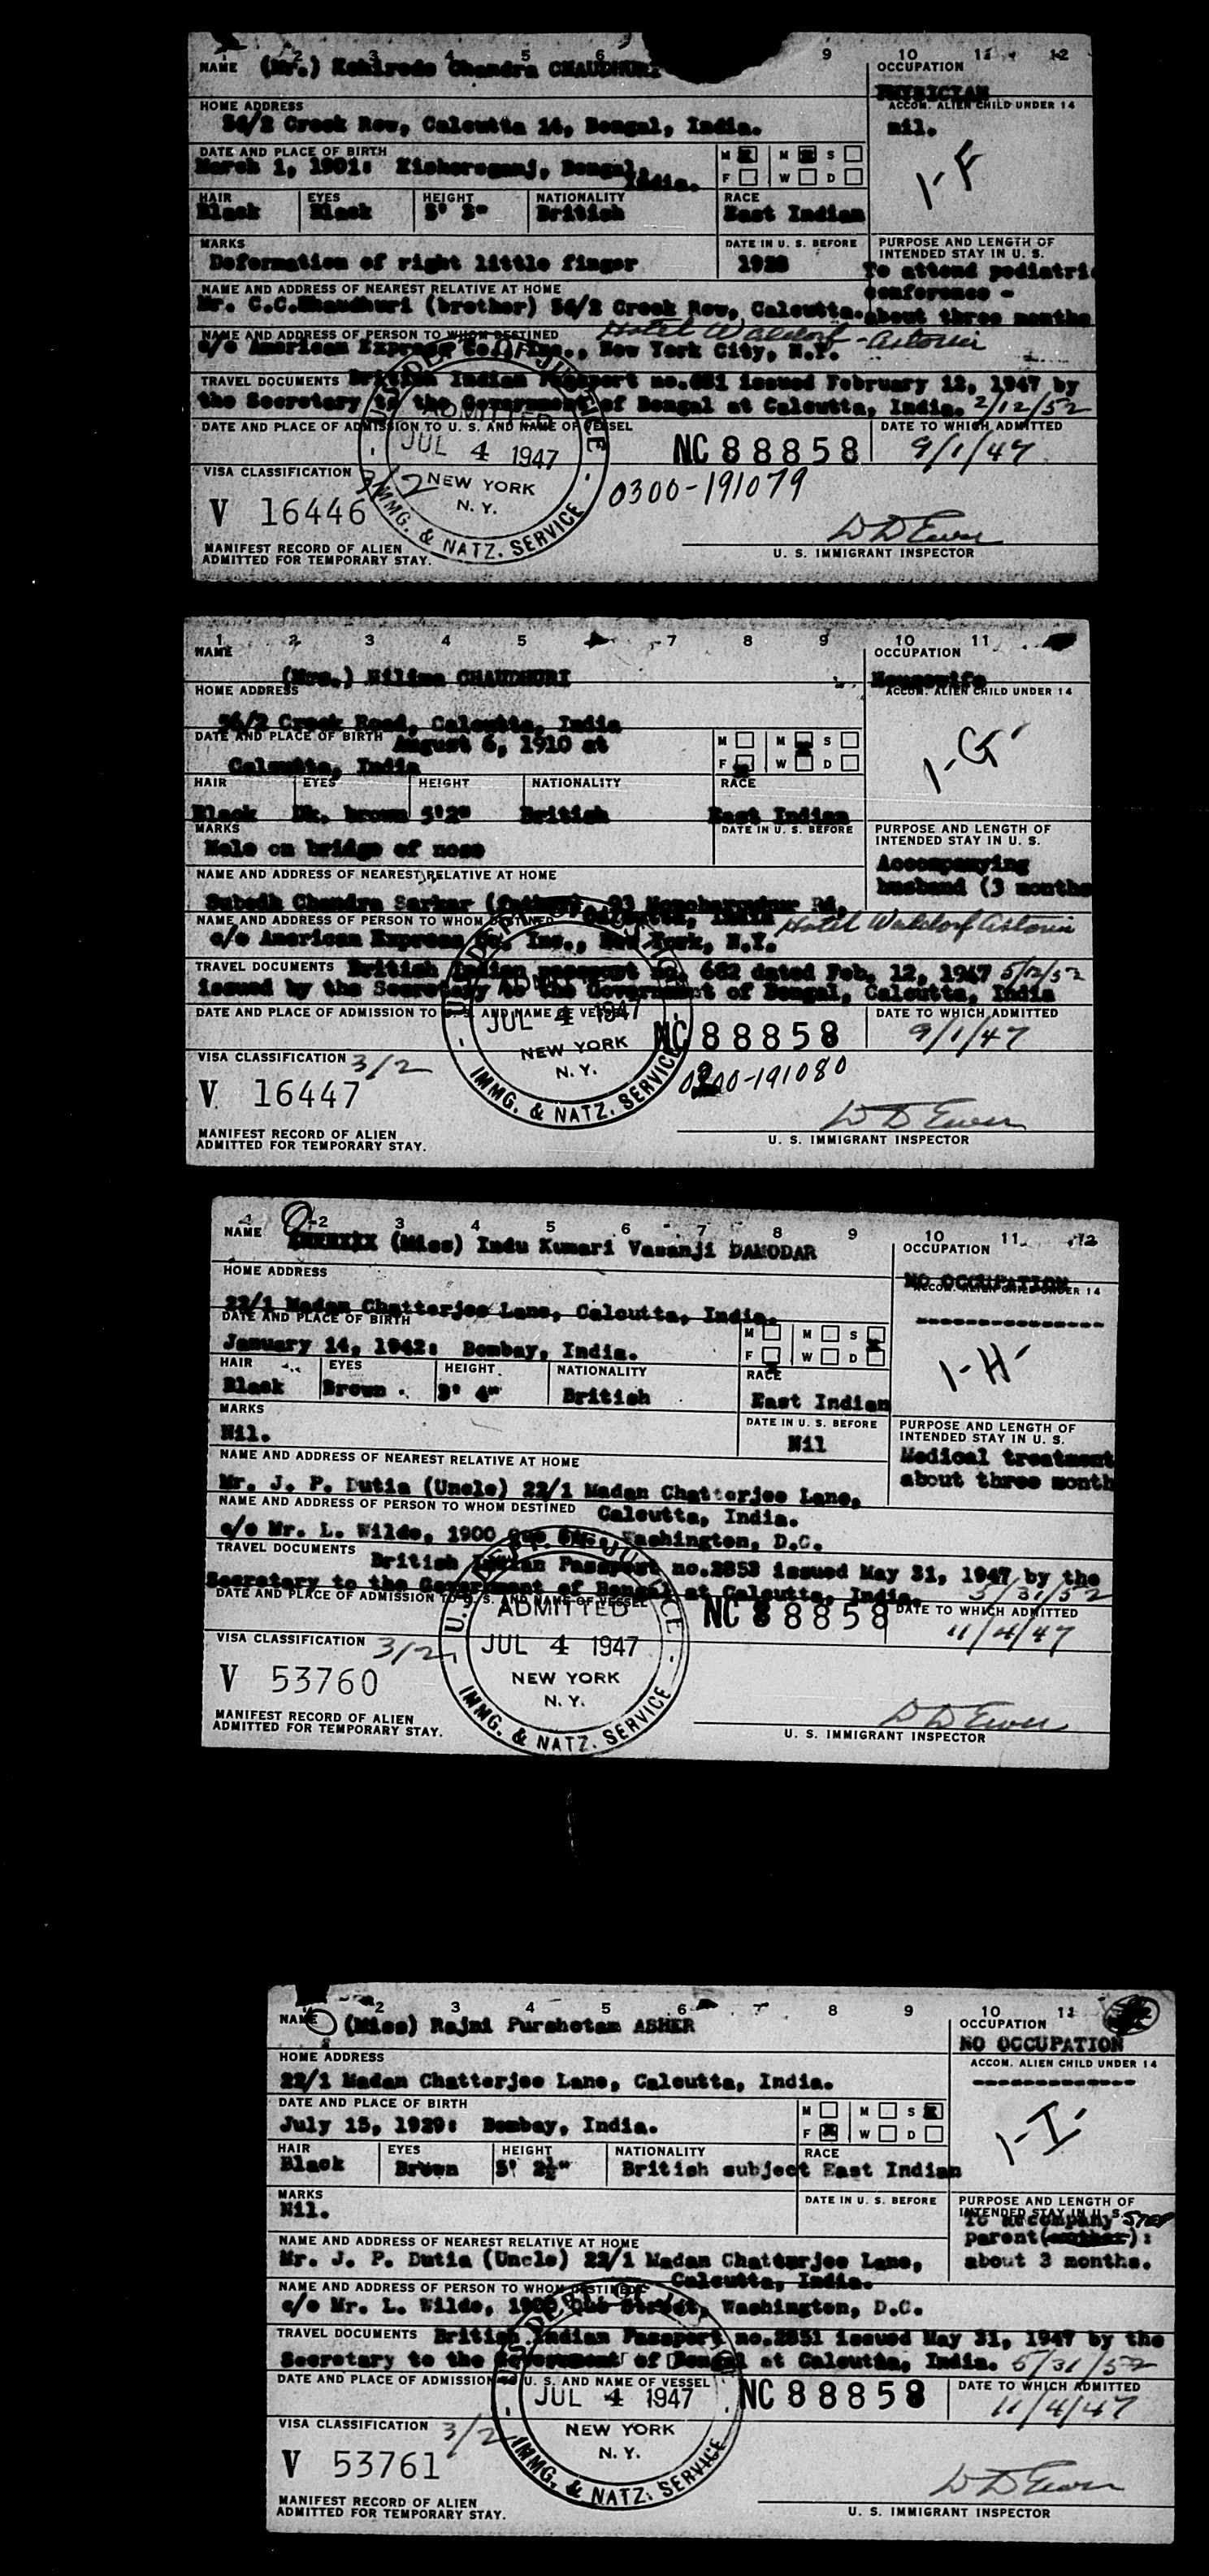 1 2 3 4 5 6 9 10 11 12
NAME (Mr.) Kshirode Chandra CHAUDHURI
OCCUPATION
PHYSICIAN
HOME ADDRESS
ACCOM. ALIEN CHILD UNDER 14
54/2 Creek Row, Calcutta 14, Bengal, India.
nil.
DATE AND PLACE OF BIRTH
March 1, 1901: Kishoreganj, Bengal, India.
M M S
F W D
1-F
HAIR EYES HEIGHT NATIONALITY RACE
Black Black 5' British East Indian
MARKS
Deformation of right little finger
DATE IN U. S. BEFORE
1928
PURPOSE AND LENGTH OF INTENDED STAY IN U. S.
To attend pediatric
conference -
about three months
NAME AND ADDRESS OF NEAREST RELATIVE AT HOME
Mr. C.C.Chaudhuri (brother) 54/2 Creek Row, Calcutta.
NAME AND ADDRESS OF PERSON TO WHOM DESTINED
Hotel Waldorf-Astoria
c/o American Express Co., Inc., New York City, N.Y.
TRAVEL DOCUMENTS British Indian Passport no.681 issued February 12, 1947 by
the Secretary to the Government of Bengal at Calcutta, India. 2/12/52
DATE AND PLACE OF ADMISSION TO U. S. AND NAME OF VESSEL
DATE TO WHICH ADMITTED
ADMITTED
JUL 4 1947
NEW YORK
N. Y.
IMMG. & NATZ. SERVICE
NC 88858
9/1/47
VISA CLASSIFICATION 3/2
0300-191079
V 16446
D D Ewen
MANIFEST RECORD OF ALIEN
ADMITTED FOR TEMPORARY STAY.
U. S. IMMIGRANT INSPECTOR
1 2 3 4 5 7 8 9 10 11
NAME
(Mrs.) Nilima CHAUDHURI
OCCUPATION
Housewife
HOME ADDRESS
ACCOM. ALIEN CHILD UNDER 14
54/2 Creek Road, Calcutta, India
DATE AND PLACE OF BIRTH August 6, 1910 at
Calcutta, India
M M S
F W D
1-G
HAIR EYES HEIGHT NATIONALITY RACE
Black Dk. brown 5'2" British East Indian
MARKS
Mole on bridge of nose
DATE IN U. S. BEFORE
PURPOSE AND LENGTH OF INTENDED STAY IN U. S.
Accompanying
husband (3 months
NAME AND ADDRESS OF NEAREST RELATIVE AT HOME
Subodh Chandra Sarkar (father), 93 Rd,
Calcutta, India
NAME AND ADDRESS OF PERSON TO WHOM DESTINED
Hotel Waldorf Astoria
c/o American Express Co. Inc., New York, N.Y.
TRAVEL DOCUMENTS British Indian passport no. 682 dated Feb. 12, 1947
issued by the Secretary to the Government of Bengal, Calcutta, India
DATE AND PLACE OF ADMISSION TO U. S. AND NAME OF VESSEL
DATE TO WHICH ADMITTED
JUL 4 1947
NEW YORK
N. Y.
IMMG. & NATZ. SERVICE
NC 88858
9/1/47
VISA CLASSIFICATION 3/2
0300-191080
V 16447
D D Ewen
MANIFEST RECORD OF ALIEN
ADMITTED FOR TEMPORARY STAY.
U. S. IMMIGRANT INSPECTOR
2 3 4 5 6 7 8 9 10 11 12
NAME (Miss) Indu Kumari Vasanji DAMODAR
OCCUPATION
NO OCCUPATION
HOME ADDRESS
ACCOM. ALIEN CHILD UNDER 14
22/1 Madan Chatterjee Lane, Calcutta, India.
DATE AND PLACE OF BIRTH
January 14, 1942: Bombay, India.
M M S
F W D
1-H
HAIR EYES HEIGHT NATIONALITY RACE
Black Brown 3' 4" British East Indian
MARKS
Nil.
DATE IN U. S. BEFORE
Nil
PURPOSE AND LENGTH OF INTENDED STAY IN U. S.
Medical treatment
about three month
NAME AND ADDRESS OF NEAREST RELATIVE AT HOME
Mr. J. P. Dutia (Uncle) 22/1 Madan Chatterjee Lane,
Calcutta, India.
NAME AND ADDRESS OF PERSON TO WHOM DESTINED
c/o Mr. L. Wilde, 1900 Que St., Washington, D.C.
TRAVEL DOCUMENTS British Indian Passport no.2853 issued May 31, 1947 by the
Secretary to the Government of Bengal at Calcutta, India. 5/31/52
DATE AND PLACE OF ADMISSION TO U. S. AND NAME OF VESSEL
DATE TO WHICH ADMITTED
ADMITTED
JUL 4 1947
NEW YORK
N. Y.
IMMG. & NATZ. SERVICE
NC 88858
11/4/47
VISA CLASSIFICATION 3/2
V 53760
D D Ewen
MANIFEST RECORD OF ALIEN
ADMITTED FOR TEMPORARY STAY.
U. S. IMMIGRANT INSPECTOR
2 3 4 5 6 7 8 9 10 11
NAME (Miss) Rajni Purshotam ASHER
OCCUPATION
NO OCCUPATION
HOME ADDRESS
ACCOM. ALIEN CHILD UNDER 14
22/1 Madan Chatterjee Lane, Calcutta, India.
DATE AND PLACE OF BIRTH
July 15, 1929: Bombay, India.
M M S
F W D
1-I
HAIR EYES HEIGHT NATIONALITY RACE
Black Brown 5' 2½" British subject East Indian
MARKS
Nil.
DATE IN U. S. BEFORE
PURPOSE AND LENGTH OF INTENDED STAY IN U. S.
To accompany step
parent(mother):
about 3 months.
NAME AND ADDRESS OF NEAREST RELATIVE AT HOME
Mr. J. P. Dutia (Uncle) 22/1 Madan Chatterjee Lane,
Calcutta, India.
NAME AND ADDRESS OF PERSON TO WHOM DESTINED
c/o Mr. L. Wilde, 1900 Que Street, Washington, D.C.
TRAVEL DOCUMENTS British Indian Passport no.2851 issued May 31, 1947 by the
Secretary to the Government of Bengal at Calcutta, India. 5/31/52
DATE AND PLACE OF ADMISSION TO U. S. AND NAME OF VESSEL
DATE TO WHICH ADMITTED
JUL 4 1947
NEW YORK
N. Y.
IMMG. & NATZ. SERVICE
NC 88858
11/4/47
VISA CLASSIFICATION 3/2
V 53761
D D Ewen
MANIFEST RECORD OF ALIEN
ADMITTED FOR TEMPORARY STAY.
U. S. IMMIGRANT INSPECTOR